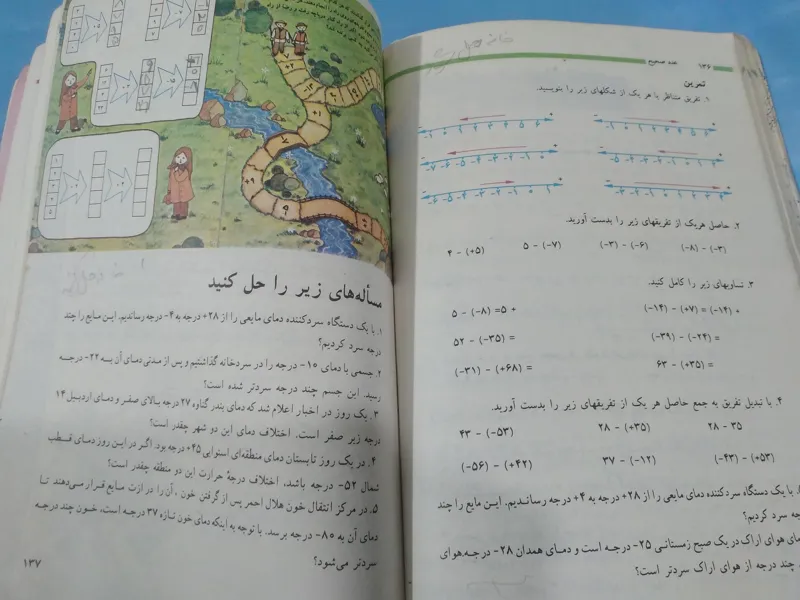 ۱۳۶
عدد صحیح
تمرین
۱. تفریق متناظر با هر یک از شکلهای زیر را بنویسید.
-۱ ۰ ۱ ۲ ۳ ۴ ۵ ۶
-۱ ۰ ۱ ۲ ۳ ۴ ۵ ۶
-۷ -۶ -۵ -۴ -۳ -۲ -۱ ۰
-۶ -۵ -۴ -۳ -۲ -۱ ۰
۲. حاصل هریک از تفریقهای زیر را بدست آورید.
(-۸) - (-۳)
(-۳) - (-۶)
۵ - (-۷)
۴ - (+۵)
۳. تساویهای زیر را کامل کنید.
(-۱۴) - (+۷) = (-۱۴) +
۵ - (-۸) =۵ +
(-۳۹) - (-۲۴) =
۵۲ - (-۳۵) =
۶۳ - (+۳۵) =
(-۳۱) - (+۶۸) =
۴. با تبدیل تفریق به جمع حاصل هر یک از تفریقهای زیر را بدست آورید.
۲۸ - ۳۵
۲۸ - (+۳۵)
۴۳ - (-۵۳)
(-۴۳) - (+۵۳)
۳۷ - (-۱۲)
(-۵۶) - (+۴۲)
با یک دستگاه سردکننده دمای مایعی را از ۲۸+ درجه به ۴+ درجه رساندیم. این مایع را چند
سرد کردیم؟
هوای اراک در یک صبح زمستانی ۲۵- درجه است و دمای همدان ۲۸- درجه. هوای
چند درجه از هوای اراک سردتر است؟
مسأله‌های زیر را حل کنید
۱. با یک دستگاه سردکننده دمای مایعی را از ۲۸+ درجه به ۴- درجه رساندیم. این مایع را چند
درجه سرد کردیم؟
۲. جسمی با دمای ۱۰- درجه را در سردخانه گذاشتیم و پس از مدتی دمای آن به ۲۲- درجه
رسید. این جسم چند درجه سردتر شده است؟
۳. یک روز در اخبار اعلام شد که دمای بندر گناوه ۲۷ درجه بالای صفر و دمای اردبیل ۱۴
درجه زیر صفر است. اختلاف دمای این دو شهر چقدر است؟
۴. در یک روز تابستان دمای منطقه‌ای استوایی ۴۵+ درجه بود. اگر در این روز دمای قطب
شمال ۵۲- درجه باشد، اختلاف درجهٔ حرارت این دو منطقه چقدر است؟
۵. در مرکز انتقال خون هلال احمر پس از گرفتن خون، آن را در ازت مایع قرار می‌دهند تا
دمای آن به ۸۰- درجه برسد. با توجه به اینکه دمای خون تازه ۳۷ درجه است، خون چند درجه
سردتر می‌شود؟
۱۳۷